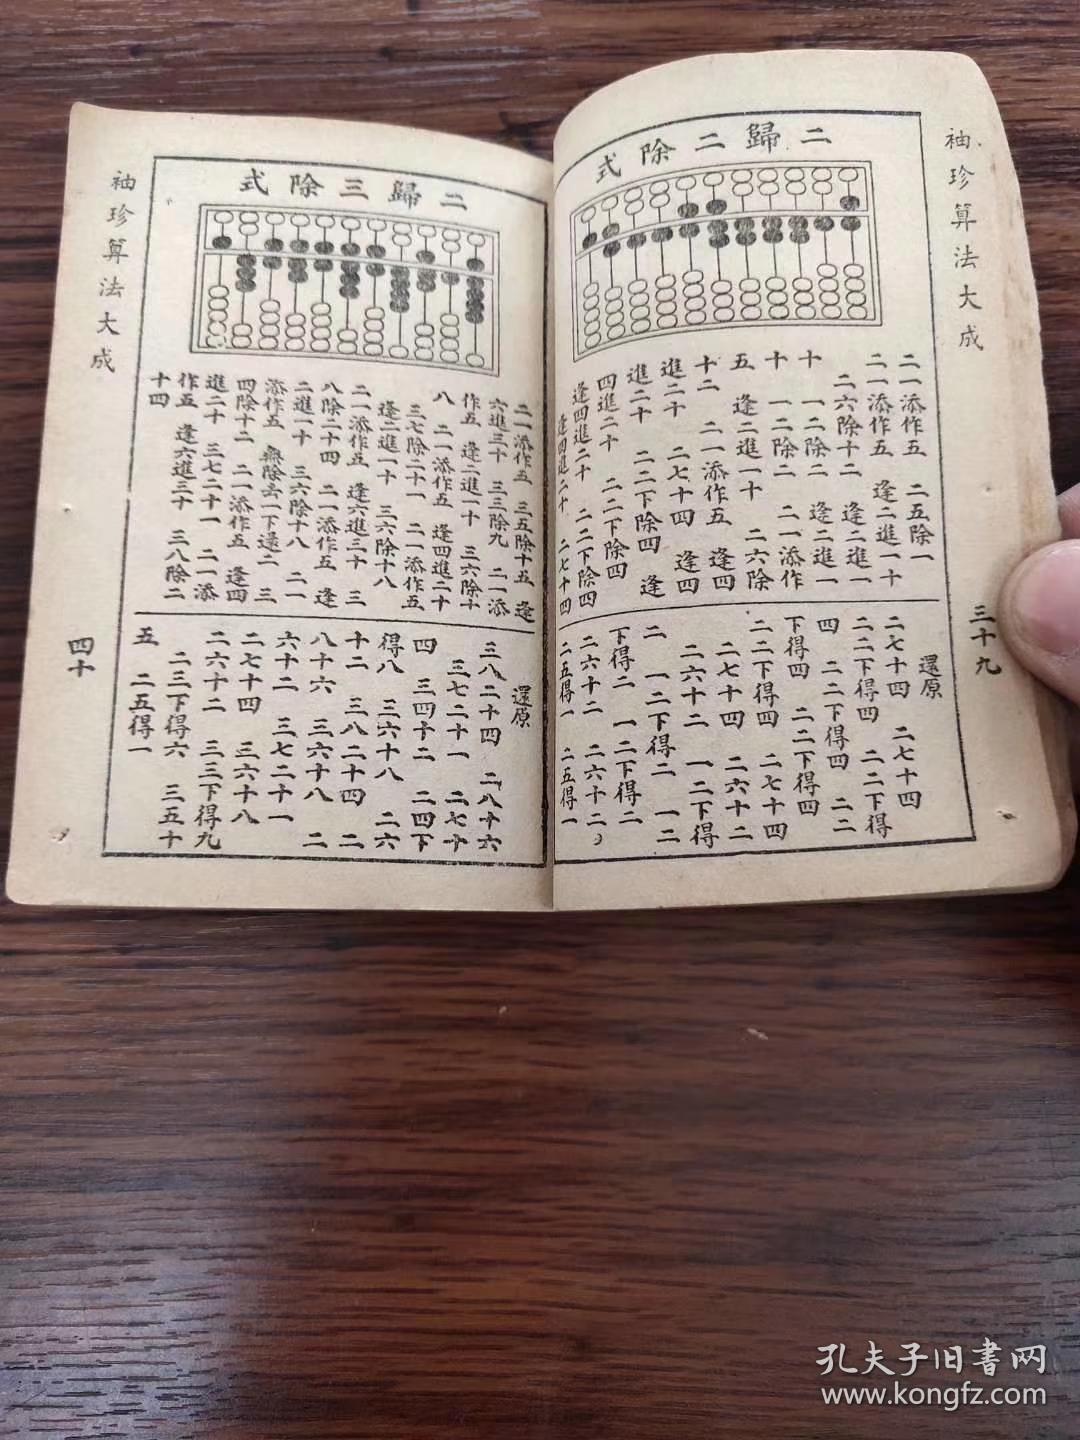 袖珍算法大成
三十九
二歸二除式
二一添作五 二五除一
二一添作五 逢二進一十
二六除十二 逢二進一
十 一二除二 逢二進一
十 一二除二 二一添作
五 逢二進一十 二六除
十二 二一添作五 逢四
進二十 二七十四 逢四
進二十 二二下除四 逢
四進二十 二二下除四
逢四進二十 二二下除四
逢四進二十 二七十四
還原
二七十四 二七十四
二二下得四 二二下得
四 二二下得四 二二
下得四 二二下得四
二二下得四 二七十四
二七十四 二六十二
二六十二 一二下得
二 一二下得二 一二
下得二 一二下得二
二六十二 二六十二
二五得一 二五得一
二歸三除式
二一添作五 三五除十五 逢
六進三十 三三除九 二一添
作五 逢二進一十 三六除十
八 二一添作五 逢四進二十
三七除二十一 二一添作五
逢二進一十 三六除十八
二一添作五 逢六進三十 三
八除二十四 二一添作五 逢
二進一十 三六除十八 二一
添作五 無除去一下還二 三
四除十二 二一添作五 逢四
進二十 三七二十一 二一添
作五 逢六進三十 三八除二
十四
還原
三八二十四 二八十六
三七二十一 二七十
四 三四十二 二四下
得八 三六十八 二六
十二 三八二十四 二
八十六 三六十八 二
六十二 三七二十一
二七十四 三六十八
二六十二 三三下得九
二三下得六 三五十
五 二五得一
袖珍算法大成
四十
孔夫子旧書网
www.kongfz.com